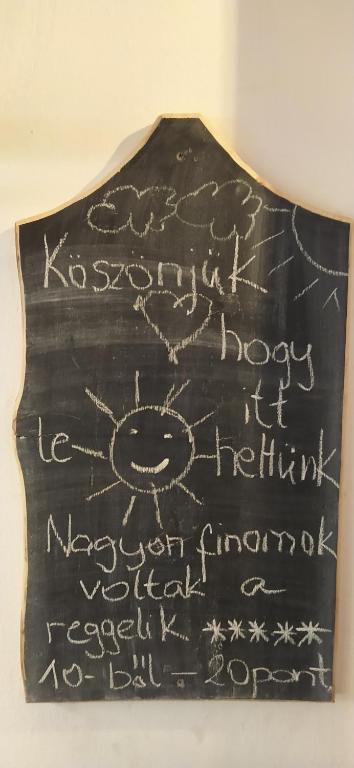 Köszönjük
hogy
itt
le-hettünk
Nagyon finomok
voltak a
reggelik *****
10-ből - 20pont